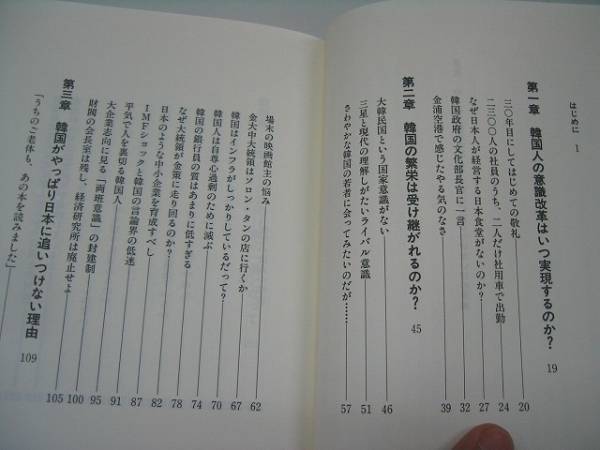 はじめに 1
第一章 韓国人の意識改革はいつ実現するのか? 19
三〇年目にしてはじめての敬礼 20
二三〇〇人の社員のうち、二人だけ社用車で出勤 24
なぜ日本人が経営する日本食堂がないのか? 27
韓国政府の文化部長官に一言 32
金浦空港で感じたやる気のなさ 39
第二章 韓国の繁栄は受け継がれるのか? 45
大韓民国という国家意識がない 46
三星と現代の理解しがたいライバル意識 51
さわやかな韓国の若者に会ってみたいのだが…… 57
場末の映画館主の悩み 62
金大中大統領はソロン・タンの店に行くか 67
韓国はインフラがしっかりしているだって? 70
韓国人は自尊心過剰のために滅ぶ 74
韓国の銀行員の質はあまりに低すぎる 78
なぜ大統領が金策に走り回るのか? 82
日本のような中小企業を育成すべし 87
IMFショックと韓国の言論界の低迷 91
平気で人を裏切る韓国人 95
大企業志向に見る「両班意識」の封建制 100
財閥の会長室は残し、経済研究所は廃止せよ 105
第三章 韓国がやっぱり日本に追いつけない理由 109
「うちのご老体も、あの本を読みました」